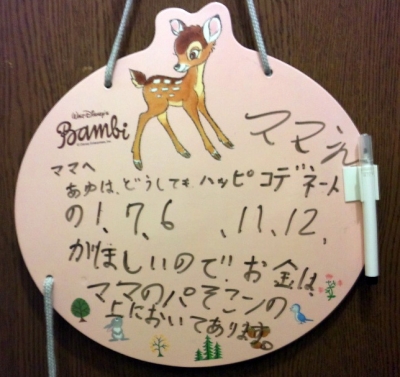 WALT DISNEY'S
Bambi
ママえ
ママへ
あゆは、どうしても、ハッピコデネート
の1、7、6、11、12、
がほしいので、お金は、
ママのパそこンの
上においてあります。